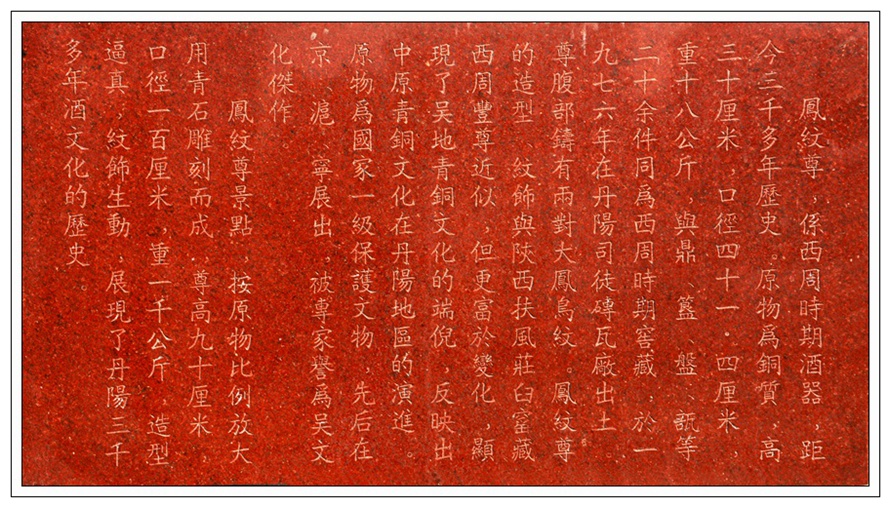 鳳紋尊，係西周時期酒器，距
今三千多年歷史。原物爲銅質，高
三十厘米，口徑四十一·四厘米，
重十八公斤，與鼎、簋、盤、瓿等
二十余件同爲西周時期窖藏，於一
九七六年在丹陽司徒磚瓦廠出土。
尊腹部鑄有兩對大鳳鳥紋。鳳紋尊
的造型、紋飾與陝西扶風莊白窖藏
西周豐尊近似，但更富於變化，顯
現了吴地青銅文化的端倪，反映出
中原青銅文化在丹陽地區的演進。
原物爲國家一級保護文物，先后在
京、滬、寧展出，被專家譽爲吴文
化傑作。
鳳紋尊景點，按原物比例放大
用青石雕刻而成。尊高九十厘米，
口徑一百厘米，重一千公斤，造型
逼真，紋飾生動，展現了丹陽三千
多年酒文化的歷史。